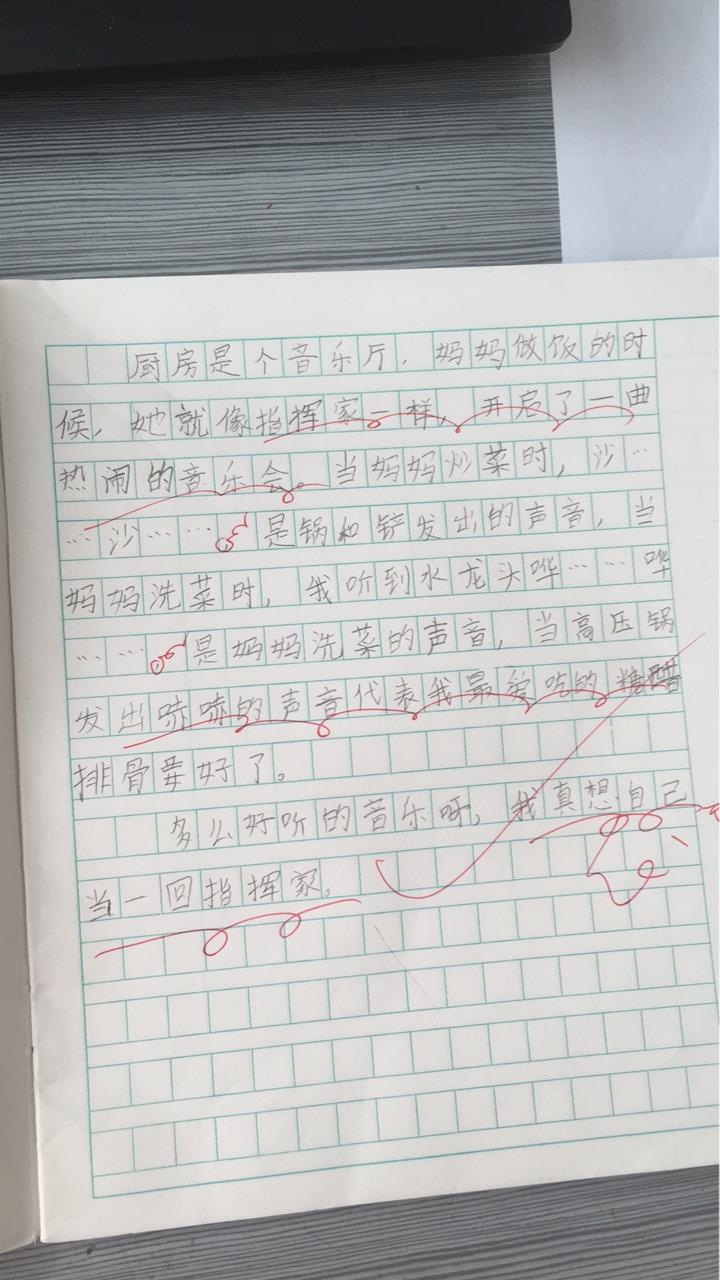 厨房是个音乐厅．妈妈做饭的时
候，她就像指挥家一样，开启了一曲
热闹的音乐会。当妈妈炒菜时，沙…
…沙……是锅和铲发出的声音，当
妈妈洗菜时，我听到水龙头哗……哗
……是妈妈洗菜的声音，当高压锅
发出哧哧的声音代表我最爱吃的糖醋
排骨要好了。
多么好听的音乐呀，我真想自己
当一回指挥家。